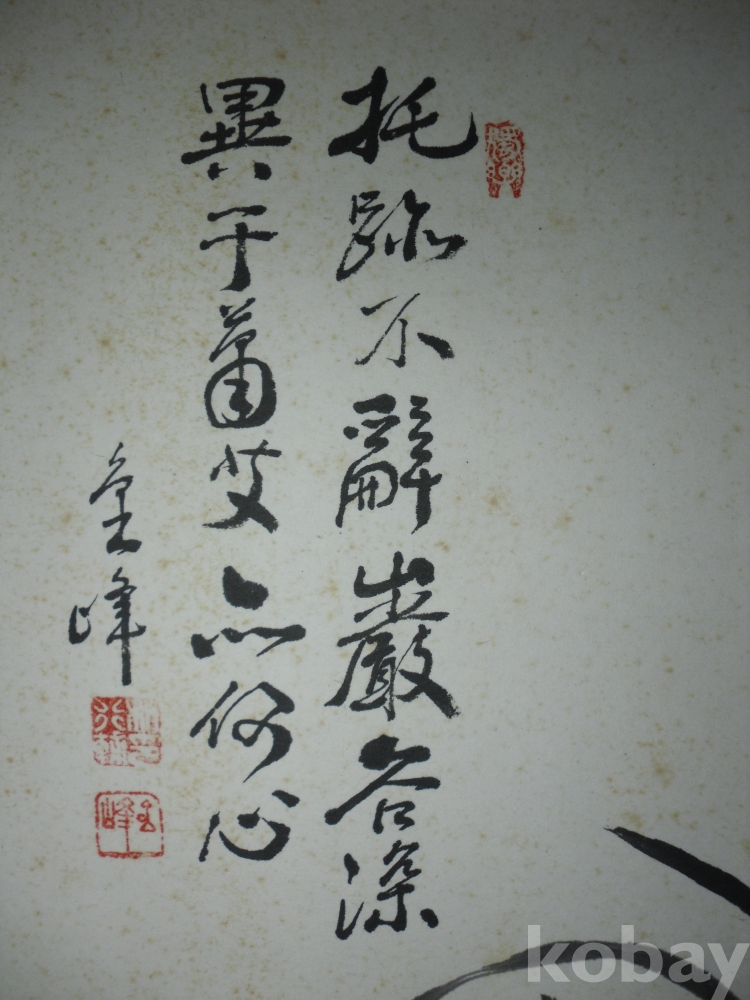 托跡不辭巖谷深
異于蕭艾亦何心
金峰
kobay